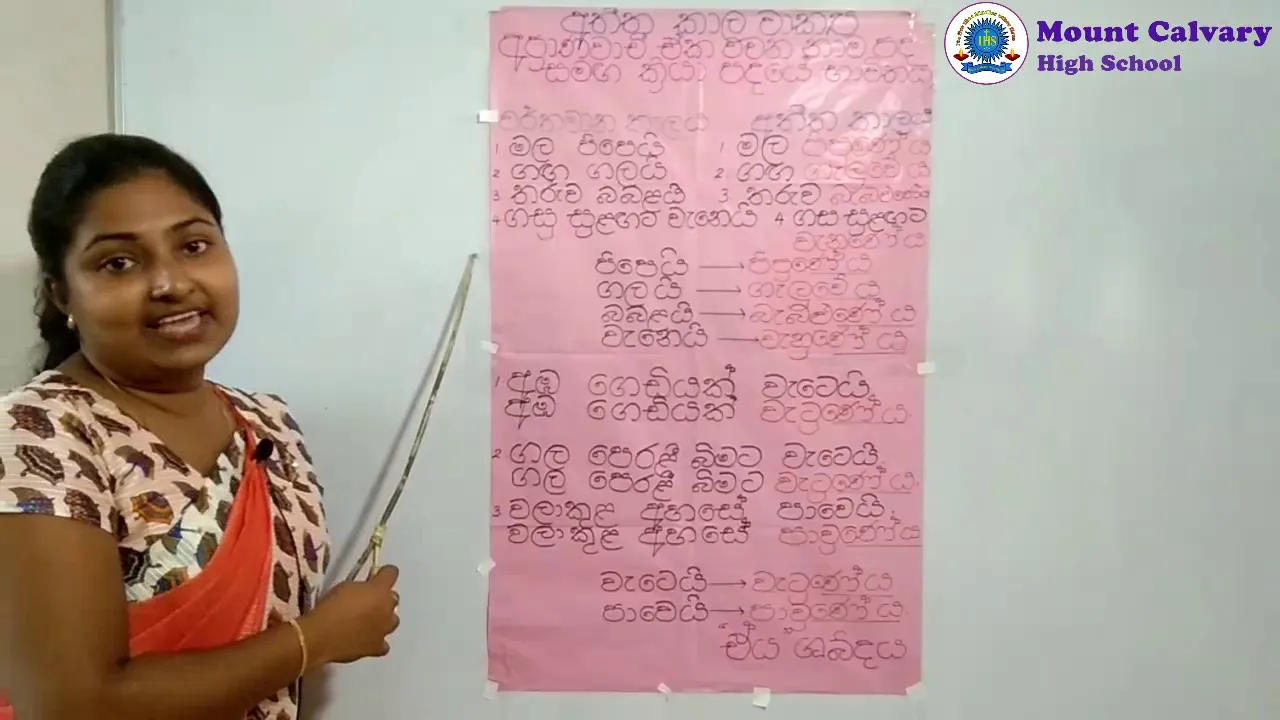 Mount Calvary
High School
IHS
අතීත කාල වාක්‍ය
අප්‍රාණවාචී ඒක වචන නාම පද
සමඟ ක්‍රියා පදයේ භාවිතය
වර්තමාන කාලය අතීත කාලය
1 මල පිපෙයි 1 මල පිපුණේය
2 ගඟ ගලයි 2 ගඟ ගැලුවේය
3 තරුව බබළයි 3 තරුව බැබළුණේය
4 ගස සුළඟට වැනෙයි 4 ගස සුළඟට
වැනුණේය
පිපෙයි → පිපුණේය
ගලයි → ගැලුවේය
බබළයි → බැබළුණේය
වැනෙයි → වැනුණේය
1 අඹ ගෙඩියක් වැටෙයි.
අඹ ගෙඩියක් වැටුණේය.
2 ගල පෙරළී බිමට වැටෙයි.
ගල පෙරළී බිමට වැටුණේය.
3 වලාකුළ අහසේ පාවෙයි.
වලාකුළ අහසේ පාවුණේය
වැටෙයි → වැටුණේය
පාවෙයි → පාවුණේය.
"ඒය" ශබ්දය